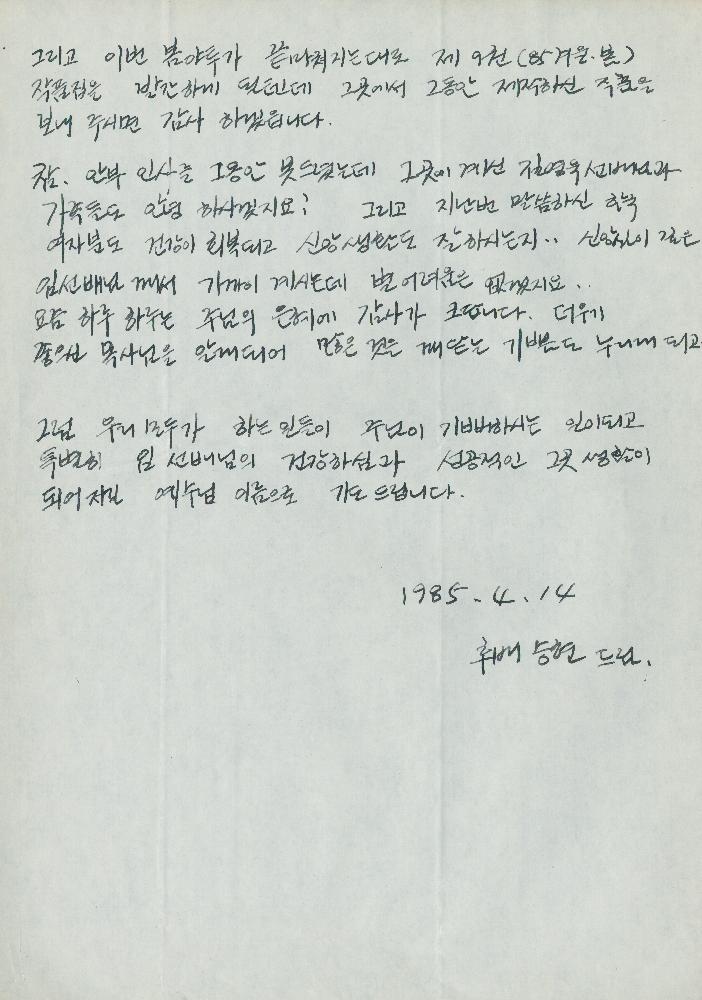 그리고 이번 봄야투가 끝마쳐지는대로 제 9권 (85 겨울·봄)
작품집을 발간하게 될텐데 그곳에서 그동안 제작하신 작품을
보내 주시면 감사 하겠읍니다.
참. 안부 인사를 그동안 못드렸는데 그곳에 계신 선배님과
가족들도 안녕 하시겠지요? 그리고 지난번 말씀하신 한국
여자분도 건강이 회복되고 신앙생활도 잘하시는지.. 신앙심이 깊은
임선배님 께서 가까이 계시는데 별 어려움은 없겠지요..
요즘 하루 하루는 주님의 은혜에 감사가 크답니다. 더우기
좋으신 목사님을 알게되어 많은 것을 깨닫는 기쁨도 누리게 되고
그럼 우리 모두가 하는 일들이 주님이 기뻐하시는 일이되고
특별히 임 선배님의 건강하심과 성공적인 그곳 생활이
되어지길 예수님 이름으로 기도 드립니다.
1985. 4. 14
후배 승현 드림.